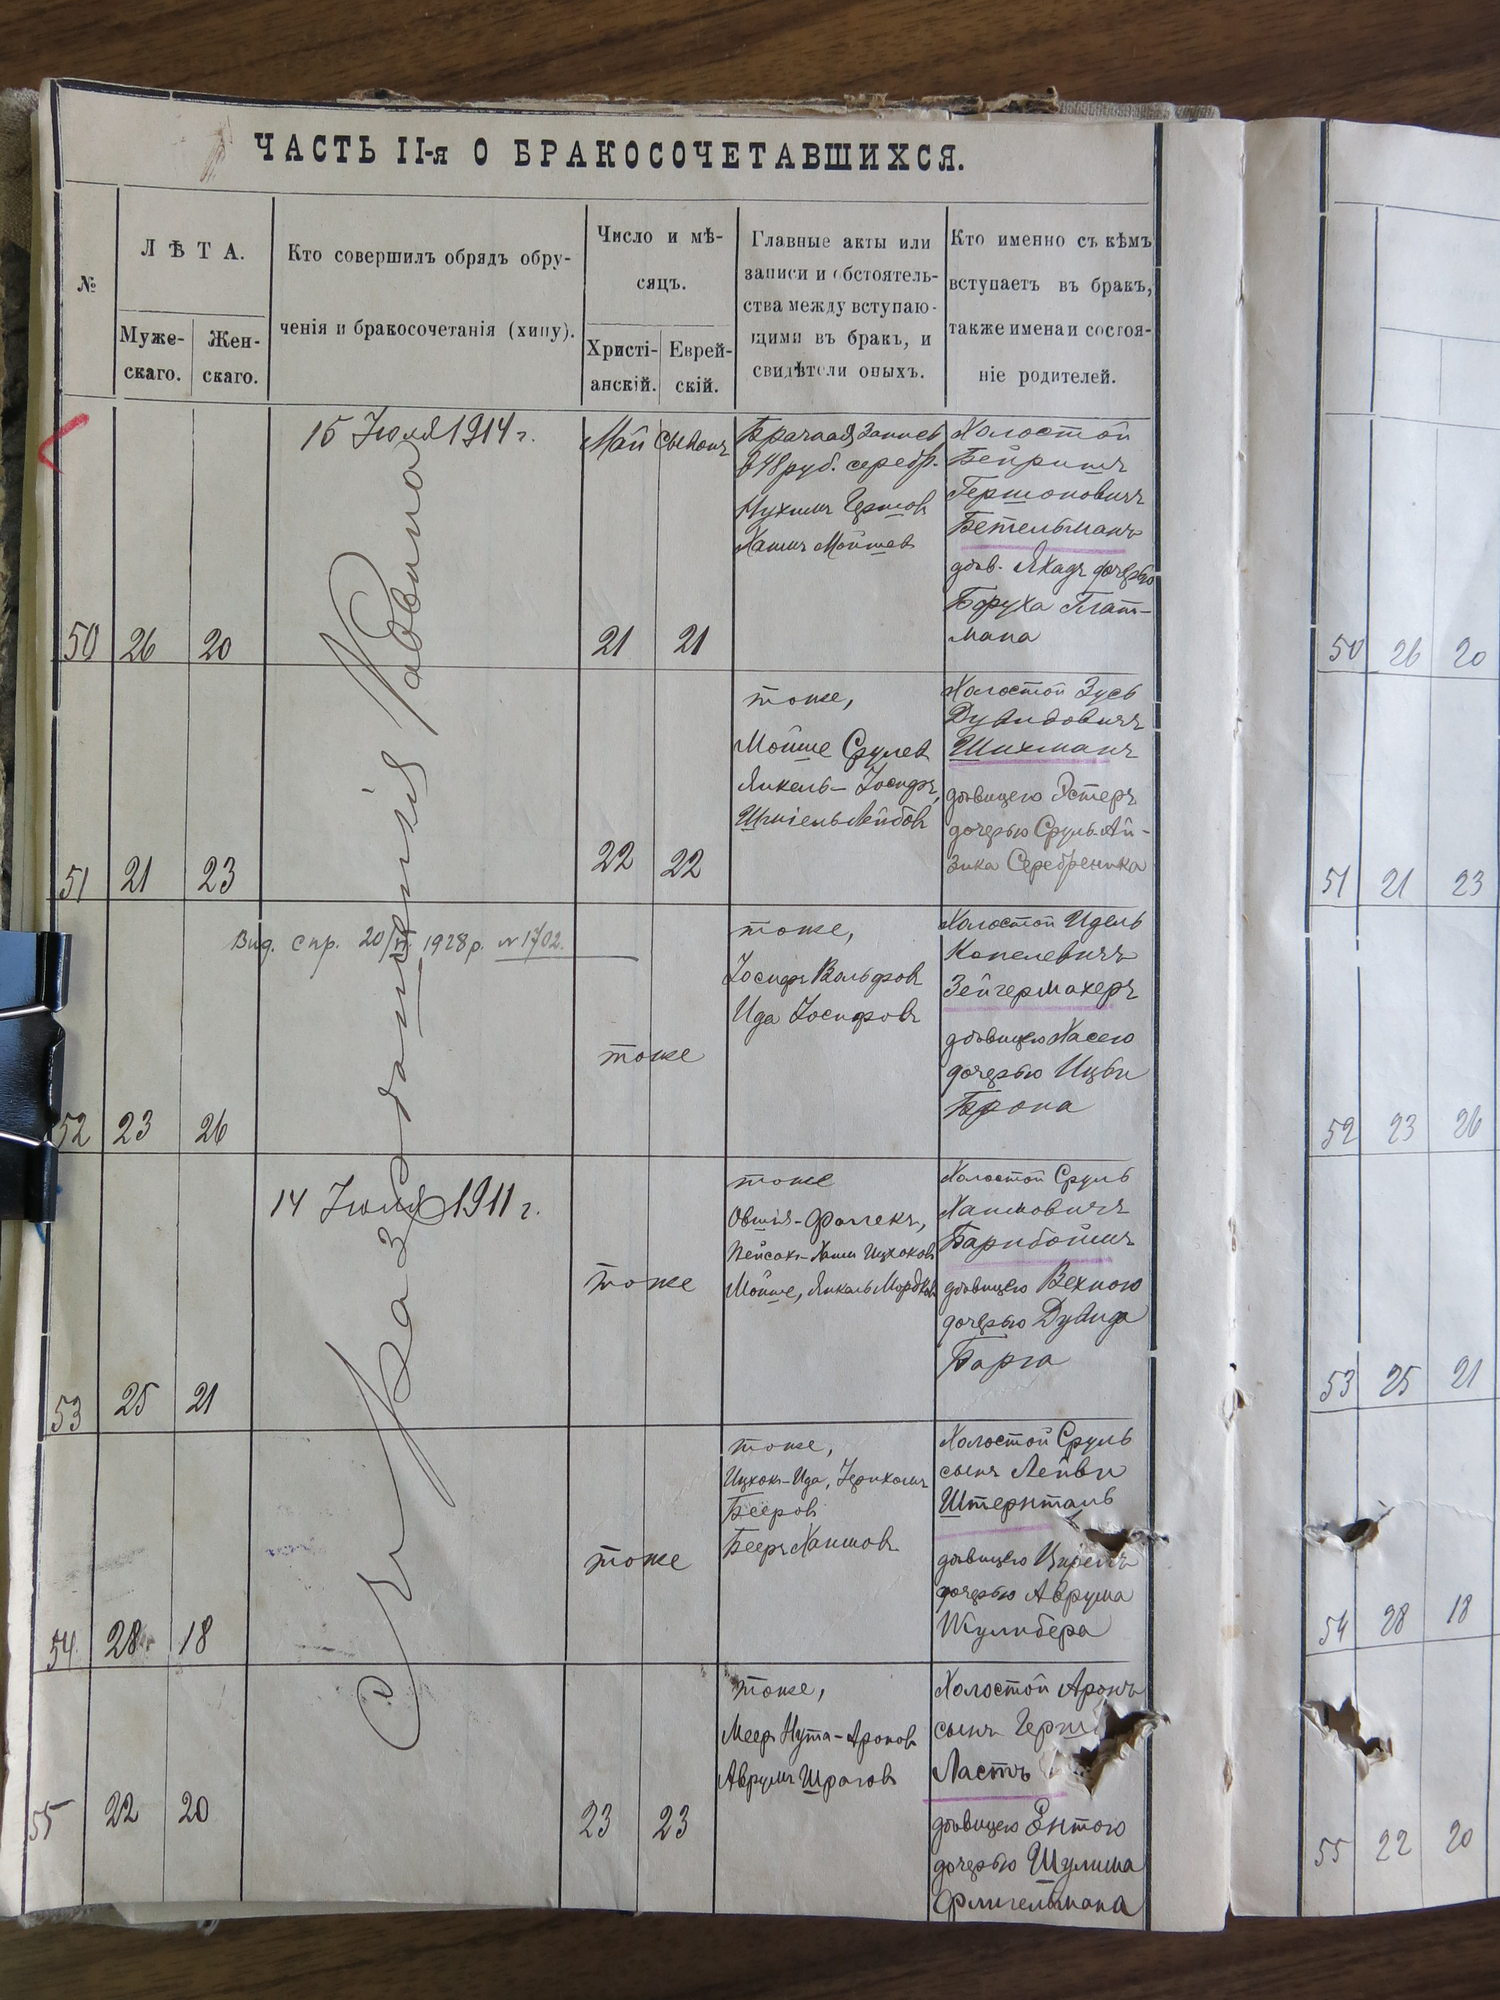 ЧАСТЬ II-я О БРАКОСОЧЕТАВШИХСЯ.
№
ЛѢТА.
Муже-
скаго.
Жен-
скаго.
Кто совершилъ обрядъ обру-
ченія и бракосочетанія (хипу).
Число и мѣ-
сяцъ.
Христі-
анскій.
Еврей-
скій.
Главные акты или
записи и обстоятель-
ства между вступаю-
щими въ бракъ, и
свидѣтели оныхъ.
Кто именно съ кѣмъ
вступаетъ въ бракъ,
также имена и состоя-
ніе родителей.
50
26
20
15 Іюля 1914 г.
Май
Сывонъ
21
21
Брачная запись
в 48 руб. серебр.
Нухимъ
Хаимъ Мойшев
Холостой
Бейришъ
Гершоновичъ
Бетельманъ
дѣв. дочерью
Боруха Плат-
мана
51
21
23
22
22
тоже,
Мойше Срулев
Янкель-Іосифъ,
Лейбов
Холостой Зусь
Дувидовичъ
Шихманъ
дѣвицею Эстеръ
дочерью Сруль-Ай-
зика Серебреника
Вид. спр. 20/ 1928 р. № 1702.
52
23
26
тоже
тоже,
Іосифъ Вольфов
Ида Іосифовъ
Холостой Идель
Копелевичъ
Зейгермахеръ
дѣвицею Хасею
дочерью
Брона
14 Іюля 1911 г.
53
25
21
тоже
тоже
Овшія-Фаллекъ,
Пейсах-Хаим Ицхоковъ
Мойше, Янкель Мордков
Холостой Сруль
Хаимовичъ
Барнбоймъ
дѣвицею Вехною
дочерью Дувида
Барга
54
28
18
тоже
тоже,
Ицхок-Ида,
Бееров
Бееръ Хаимовъ
Холостой Сруль
сынъ Лейви
Штернталь
дѣвицею
дочерью Аврума
55
22
20
23
23
тоже,
Меер Нута-Аронов
Аврумъ Шрагов
Холостой Аронъ
сынъ
Ластъ
дѣвицею Ентою
дочерью Шулима
Флигельмана
50 26 20
51 21 23
52 23 26
53 25 21
54 28 18
55 22 20